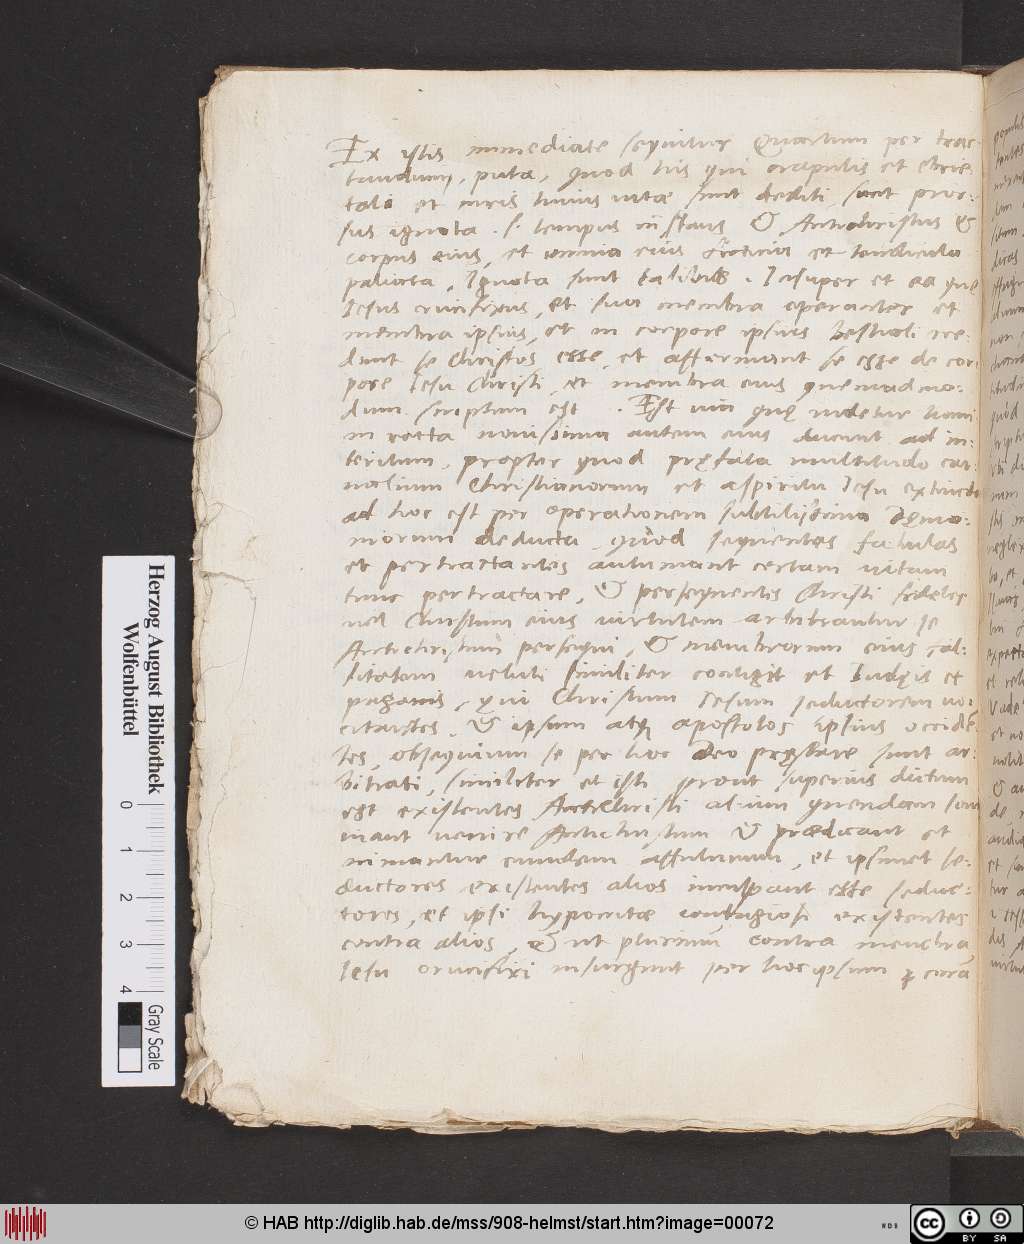 Ex istis immediate sequitur Quartum per trac
tandum, puta, quod his qui crapulis et ebrie
tati et curis huius vitæ sunt dediti, sunt pror-
sus ignota. s. tempus instans & Antichristus &
corpus eius, et omnia eius et tendicula
paliata, Ignota sunt talibus. Insuper et ea que
Iesus crucifixus, et sua membra operantes et
membra ipsius, et in corpore ipsius bestiali cre-
dunt se Christos esse, et affirmant se esse de cor
pore Iesu Christi, et membra eius quemadmo-
dum scriptum est. Est via quę videtur homi
ni recta novissima autem eius ducunt ad in-
teritum, propter quod pręfata multitudo car
nalium Christianorum et a spiritu Iesu extincto
ad hoc est per operationem subtilissima dęmo-
niorum deducta quod sequentes fabulas
et pertractantes autumant certam vitam
tunc pertractare, & persequentes Christi fideles
vel Christum eius virtutem arbitrantur se
Antichristum persequi, & membrorum eius fal-
sitatem veluti similiter contigit et Iudęis et
paganis, qui Christum Iesum seductorem vo-
citantes, & ipsum atque apostolos ipsius occidẽ
tes, obsequium se per hoc deo pręstare sunt ar-
bitrati, similiter et isti prout superius dictum
est existentes Antichristi alium quendam som
niant venire Antichristum & prædicant et
minantur eundem affuturum, et ipsimet se-
ductores existentes alios inculpant esse seduc-
tores, et ipsi hypocritæ contagiosi existentes
contra alios, & ut plurimũ contra membra
Iesu crucifixi insurgunt per hoc ipsum
Herzog August Bibliothek
Wolfenbüttel
0 1 2 3 4
Gray Scale
© HAB http://diglib.hab.de/mss/908-helmst/start.htm?image=00072
WDB
cc BY SA